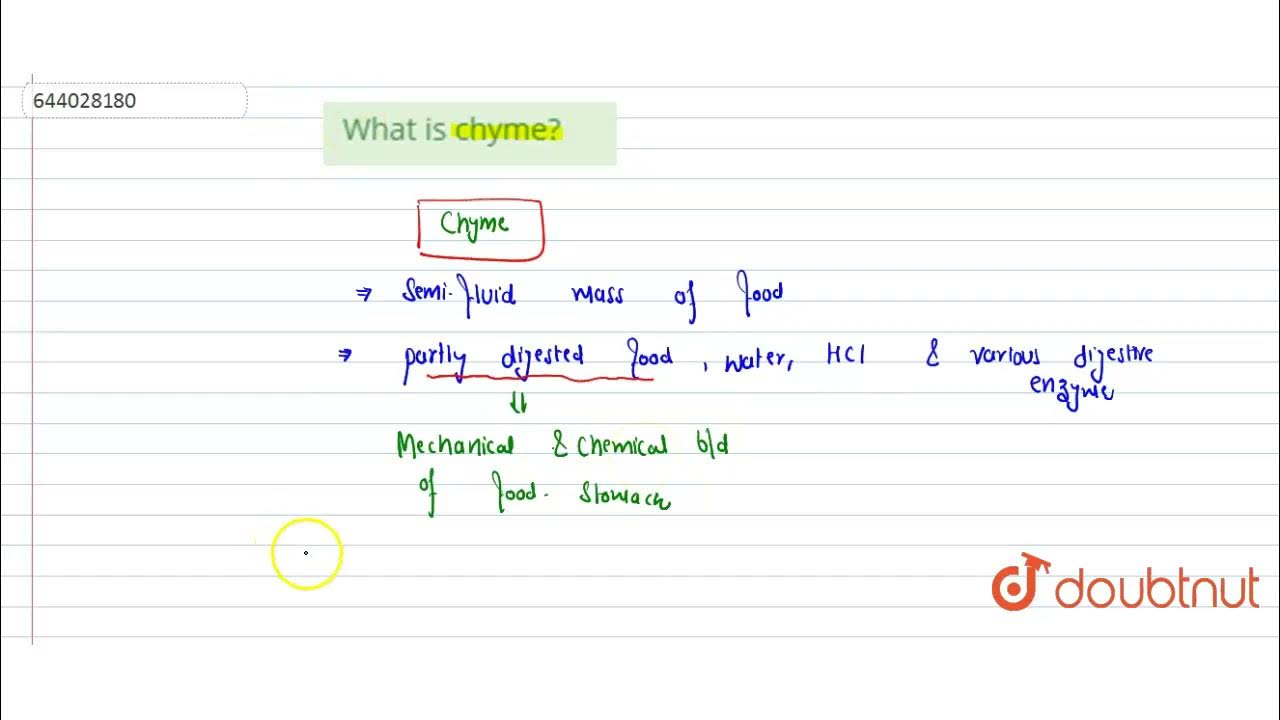 644028180
What is chyme?
Chyme
⇒ Semi-fluid mass of food
⇒ partly digested food, water, HCl & various digestive
enzyme
⇓
Mechanical & Chemical b/d
of food. Stomach
doubtnut